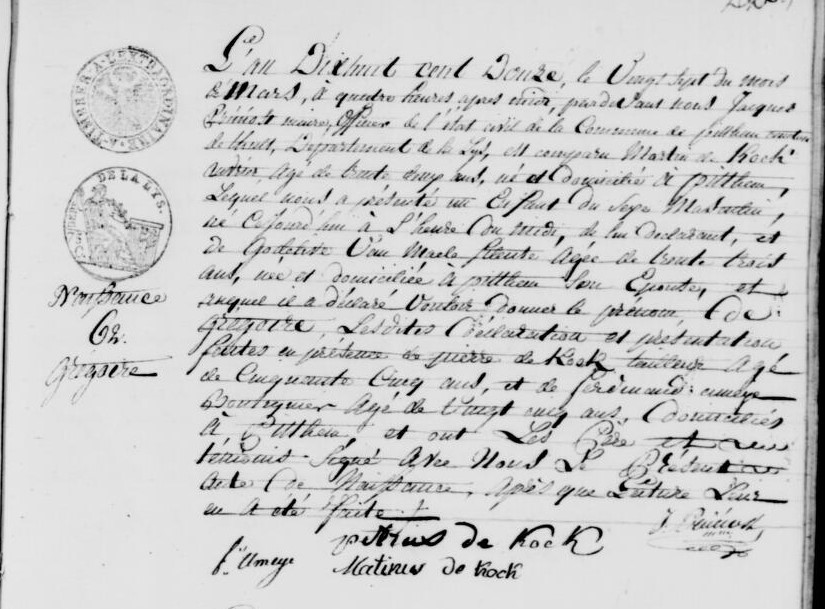 TIMBRE A L'EXTRAORDINAIRE
L'an Dixhuit cent Douze, le Vingt Sept du mois
de Mars, à quatre heures après midi, pardevant nous Jacques
maire, Officier de l'état civil de la Commune de pitthem canton
de thielt, Département de la Lys, est comparu Martin de Kock
agé de trente cinq ans, né et domicilié à pitthem,
Lequel nous a présenté un Enfant du Sexe Masculin,
né Cejourd'hui à L'heure du midi, de lui déclarant, et
de Godelive Van Maele fileuse agée de trente trois
ans, née et domiciliée à pitthem Son Epouse, et
auquel il a déclaré Vouloir donner le prénom de
DE LA LYS.
Naissance
62.
Grégoire
grégoire, Lesdites Déclaration et présentation
faites en présence de pierre de Kock tailleur agé
de Cinquante Cinq ans, et de ferdinand ameye
Boutiquier agé de vingt cinq ans, Domiciliés
à Pitthem, et ont Les Père et
témoins Signé avec Nous Le Présent
acte de Naissance, après que Lecture Leur
en a été faite.
petrus de Kock
f. Ameye
Matinus de Kock